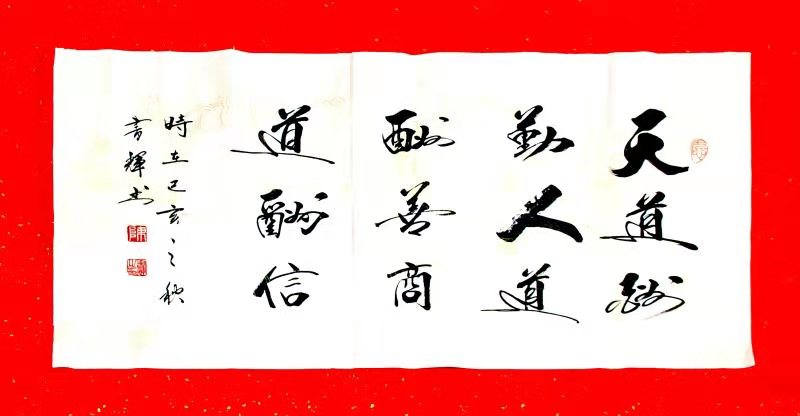 天道酬
勤人道
酬善商
道酬信
時在己亥之秋
書輝书